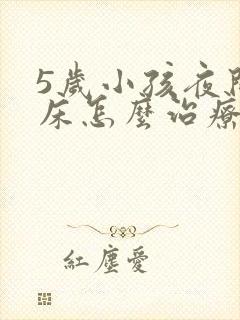 5歲小孩夜
床怎麼治療
紅塵愛